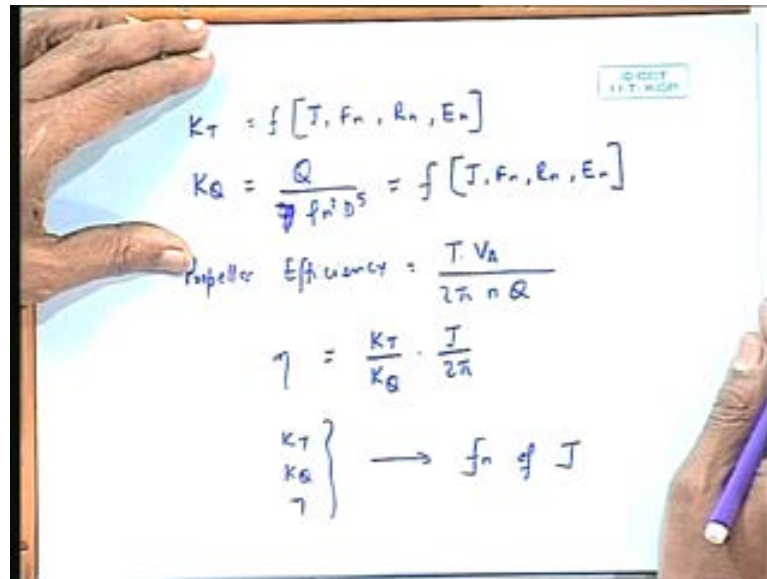 K_T = f [J, Fn, Rn, En]
K_Q = Q / ρn²D⁵ = f [J, Fn, Rn, En]
Propeller Efficiency = T. V_A / 2π n Q
η = K_T / K_Q . J / 2π
K_T
K_Q
η } → fn of J